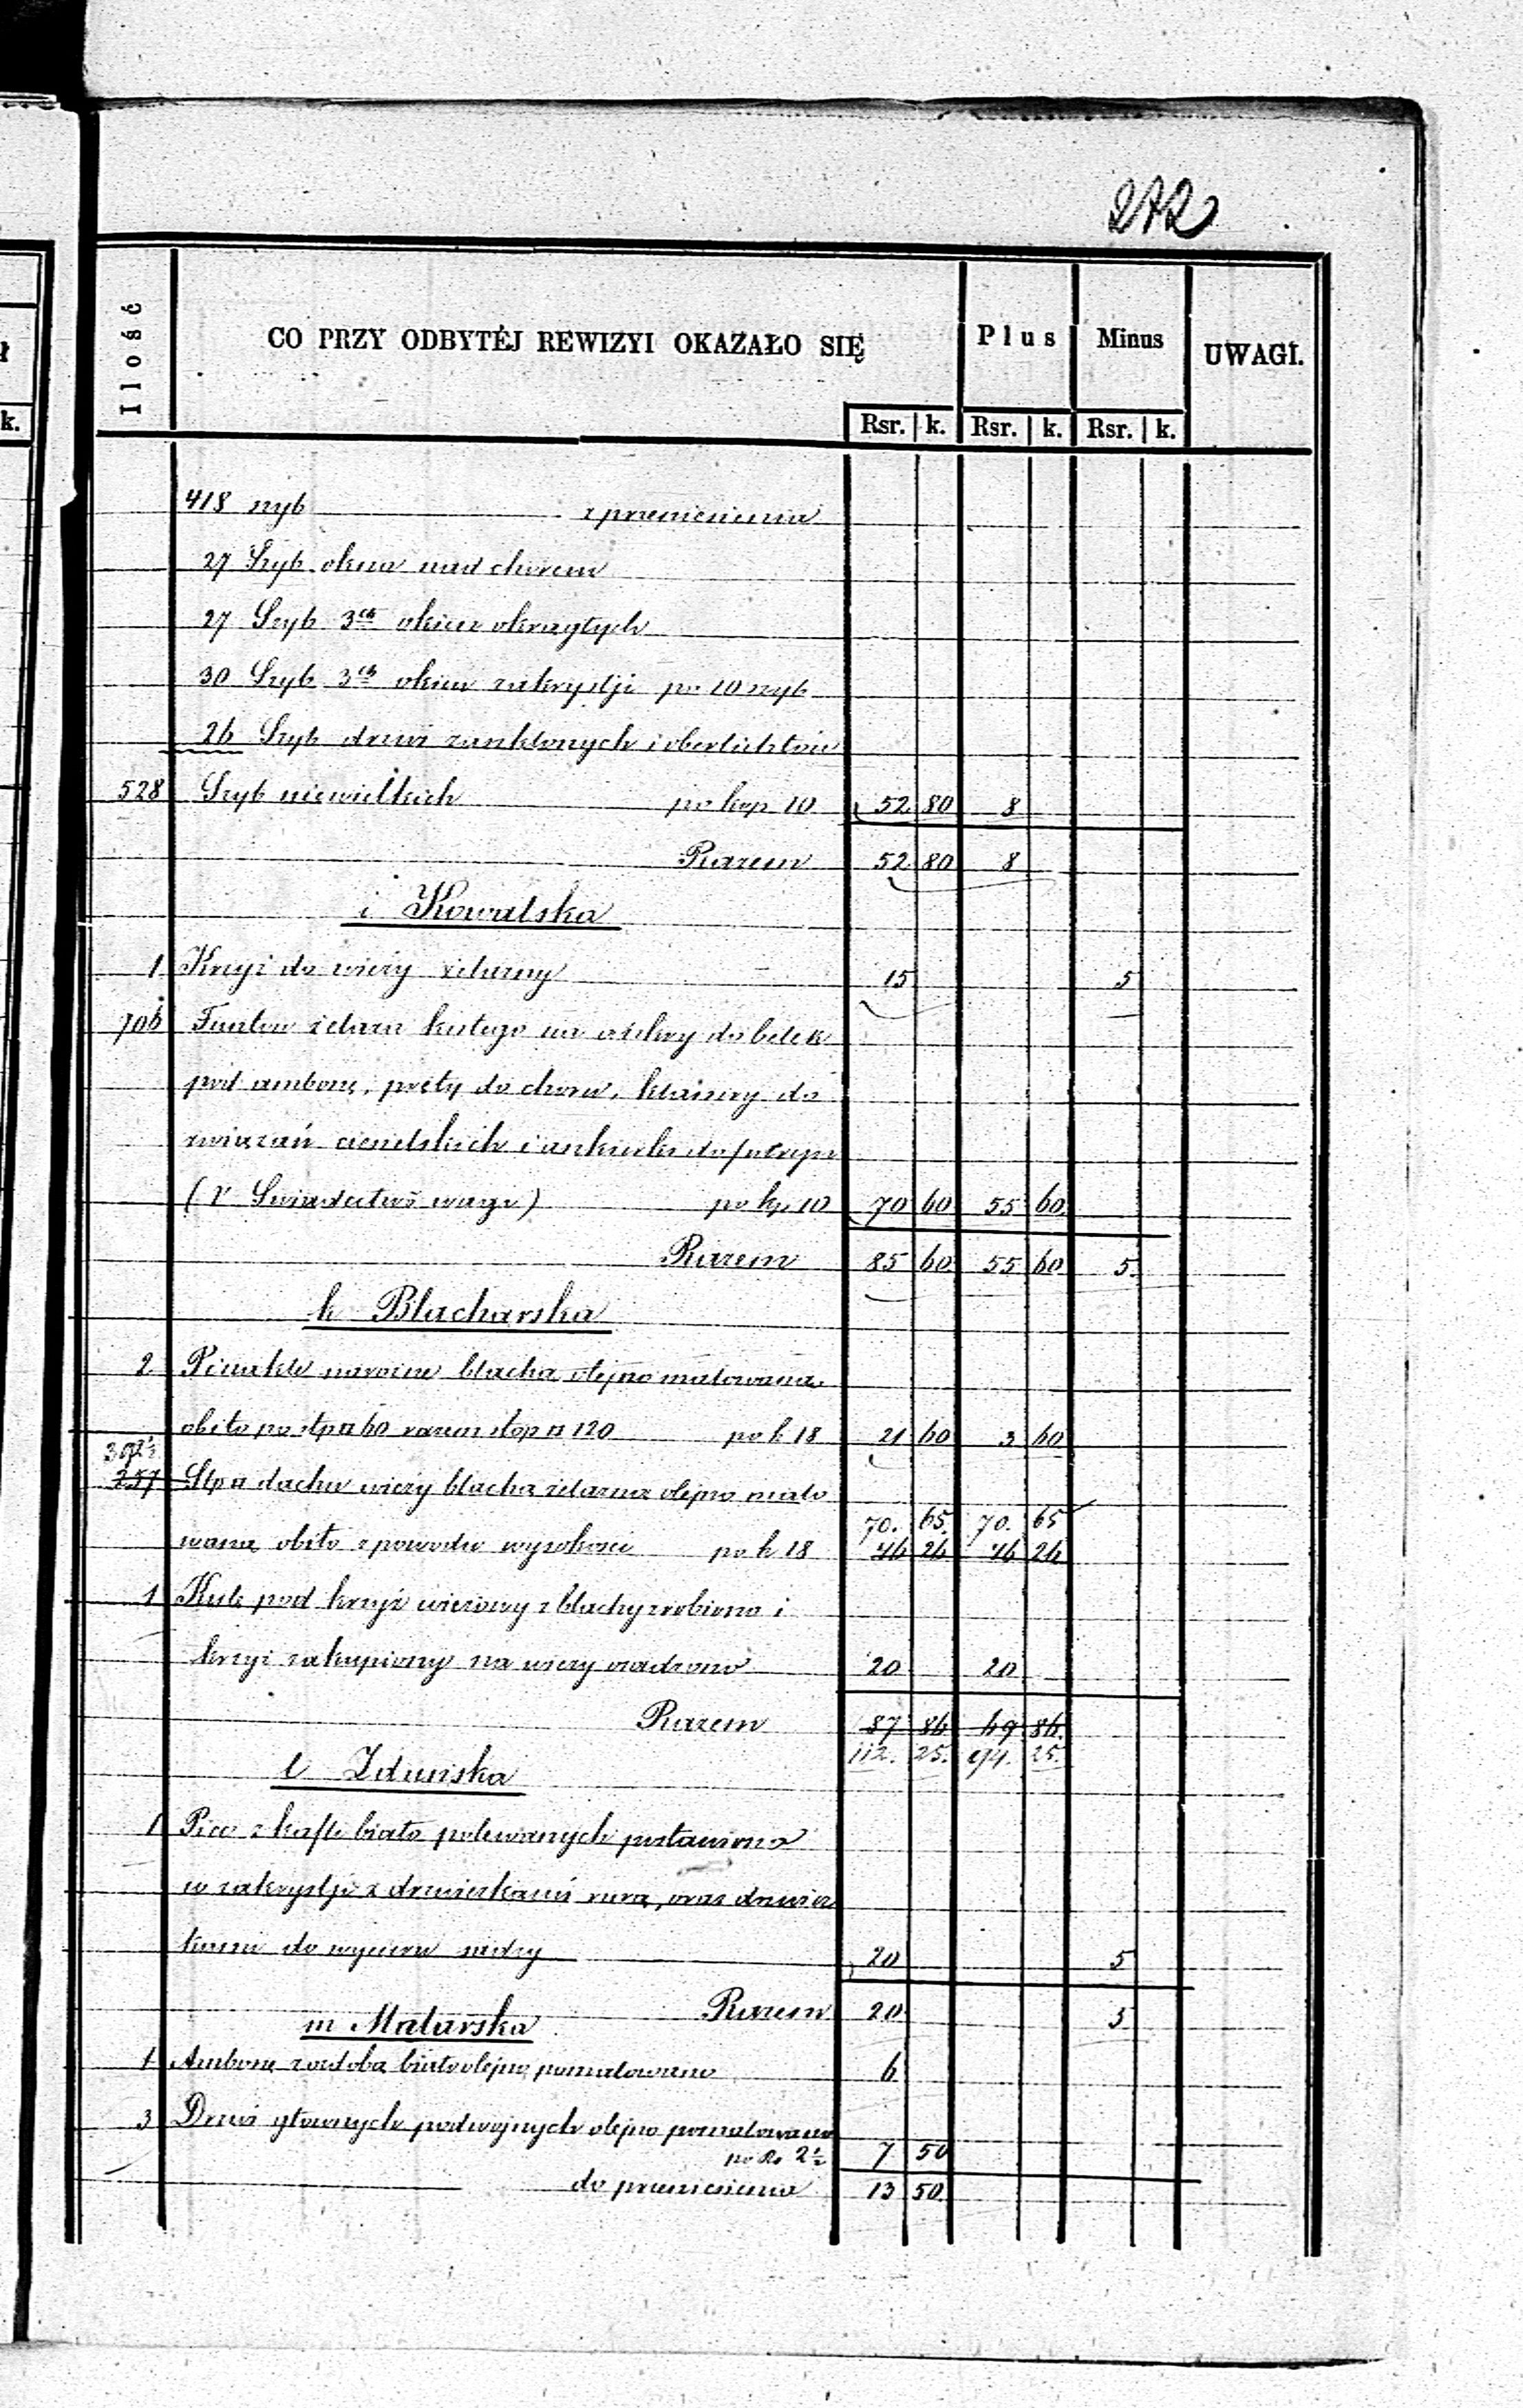 272
Ilość
CO PRZY ODBYTÉJ REWIZYI OKAZAŁO SIĘ
Plus
Minus
UWAGI.
k.
Rsr. k. Rsr. k. Rsr. k.
418 szyb z przeniesienia
27 Szyb okna nad chórem
27 Szyb 3ch okien okrągłych
30 Szyb 3ch okien zakrystji po 10 szyb
26 Szyb drzwi zaszklonych i oberlichtów
528 Szyb niewielkich po kop 10 52 80 8
Razem 52 80 8
i Kowalska
1 Krzyż do wieży żelazny 15 5
706 Funtów żelaza kutego na ankry do belek
pod ambonę, pręty do choru, klamry do
związań ciesielskich i ankierki do futryn
(v Świadectwo wagi) po kp 10 70 60 55 60
Razem 85 60 55 60 5
k Blacharska
2 Pinakle narożne blachą olejno malowaną
obito po stp □ 60 razem stop □ 120 po k 18 21 60 3 60
392½
257 Stp □ dachu wieży blachą żelazną olejno malo
70. 65. 70. 65
waną obito z powodu wysokości po k 18 46 26 46 26
1 Kulę pod krzyż wieżowy z blachy zrobiono i
krzyż zakupiony na wieży osadzono 20 20
Razem 87 86 69 86.
112. 25. 94. 25.
l Zduńska
1 Piec z kafli biało polewanych postawiono
w zakrystji z drzwiczkami rurą, oraz drzwicz
kami do wycieru sadzy 20 5
Razem 20 5
m Malarska
1 Ambonę z ozdobą biało olejno pomalowano 6
3 Drzwi głównych podwójnych olejno pomalowano
po Rs 2½ 7 50
do przeniesienia 13 50.